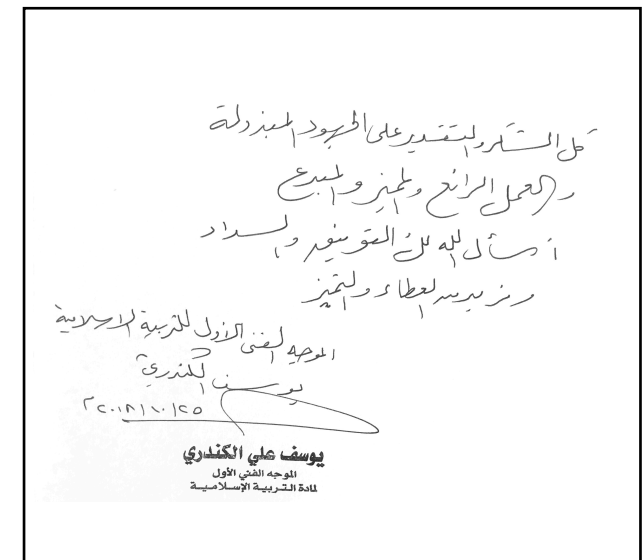 كل الشكر والتقدير على الجهود المبذولة
والعمل الرائع والمميز والمبدع
أسأل الله لك التوفيق والسداد
ومزيد من العطاء والتميز
الموجه الفني الأول للتربية الإسلامية
يوسف الكندري
٢٠١٨/١٠/٢٥م
يوسف علي الكندري
الموجه الفني الأول
لمادة التربية الإسلامية